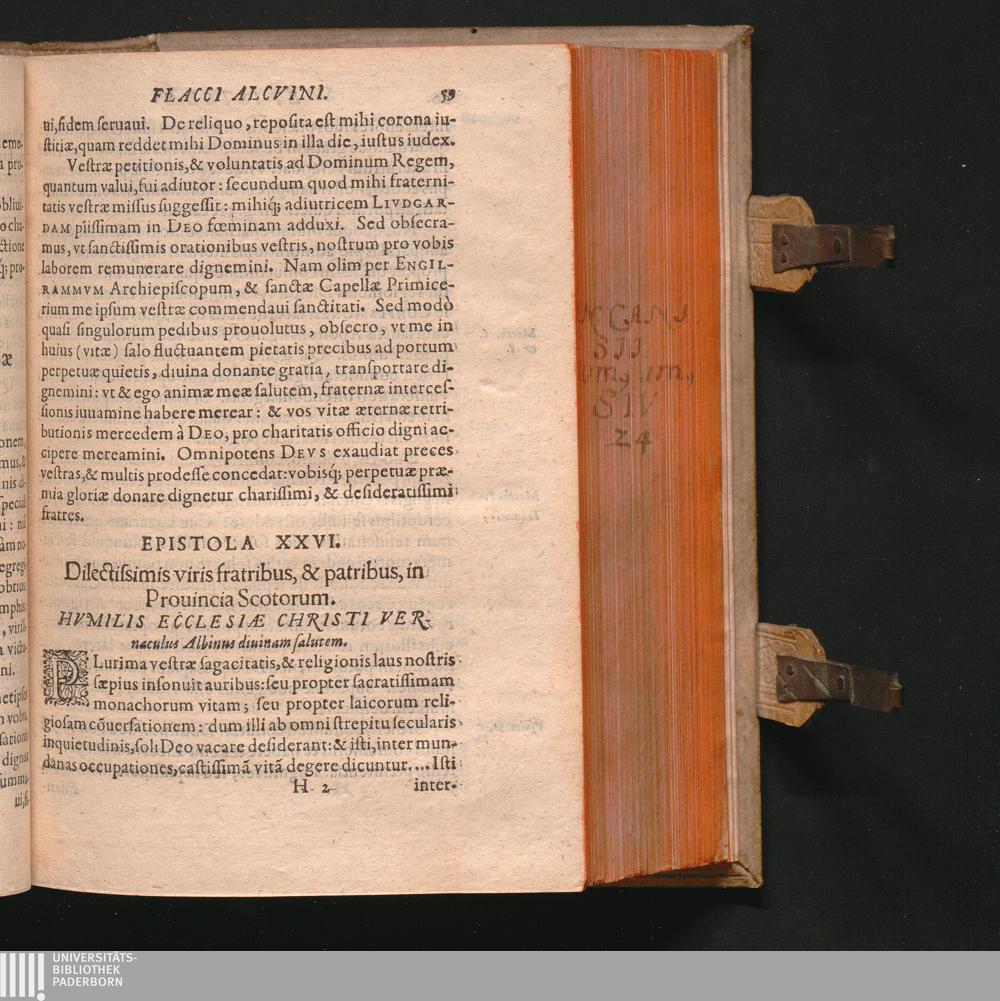 FLACCI ALCVINI. 59
ui, fidem seruaui. De reliquo, reposita est mihi corona iu-
stitiæ, quam reddet mihi Dominus in illa die, iustus iudex.
Vestræ petitionis, & voluntatis ad Dominum Regem,
quantum valui, fui adiutor: secundum quod mihi fraterni-
tatis vestræ missus suggessit: mihiq; adiutricem LIVDGAR-
DAM piissimam in DEO fœminam adduxi. Sed obsecra-
mus, vt sanctissimis orationibus vestris, nostrum pro vobis
laborem remunerare dignemini. Nam olim per ENGIL-
RAMMVM Archiepiscopum, & sanctæ Capellæ Primice-
rium me ipsum vestræ commendaui sanctitati. Sed modò
quasi singulorum pedibus prouolutus, obsecro, vt me in
huius (vitæ) salo fluctuantem pietatis precibus ad portum
perpetuæ quietis, diuina donante gratia, transportare di-
gnemini: vt & ego animæ meæ salutem, fraternæ interces-
sionis iuuamine habere merear: & vos vitæ æternæ retri-
butionis mercedem à DEO, pro charitatis officio digni ac-
cipere mereamini. Omnipotens DEVS exaudiat preces
vestras, & multis prodesse concedat: vobisq; perpetuæ præ-
mia gloriæ donare dignetur charissimi, & desideratissimi
fratres.
EPISTOLA XXVI.
Dilectissimis viris fratribus, & patribus, in
Prouincia Scotorum.
HVMILIS ECCLESIÆ CHRISTI VER-
naculus Albinus diuinam salutem.
PLurima vestræ sagacitatis, & religionis laus nostris
sæpius insonuit auribus: seu propter sacratissimam
monachorum vitam; seu propter laicorum reli-
giosam cōuersationem: dum illi ab omni strepitu secularis
inquietudinis, soli Deo vacare desiderant: & isti, inter mun-
danas occupationes, castissimā vitā degere dicuntur.... Isti
H 2 inter-
SIV
24
UNIVERSITÄTS-
BIBLIOTHEK
PADERBORN